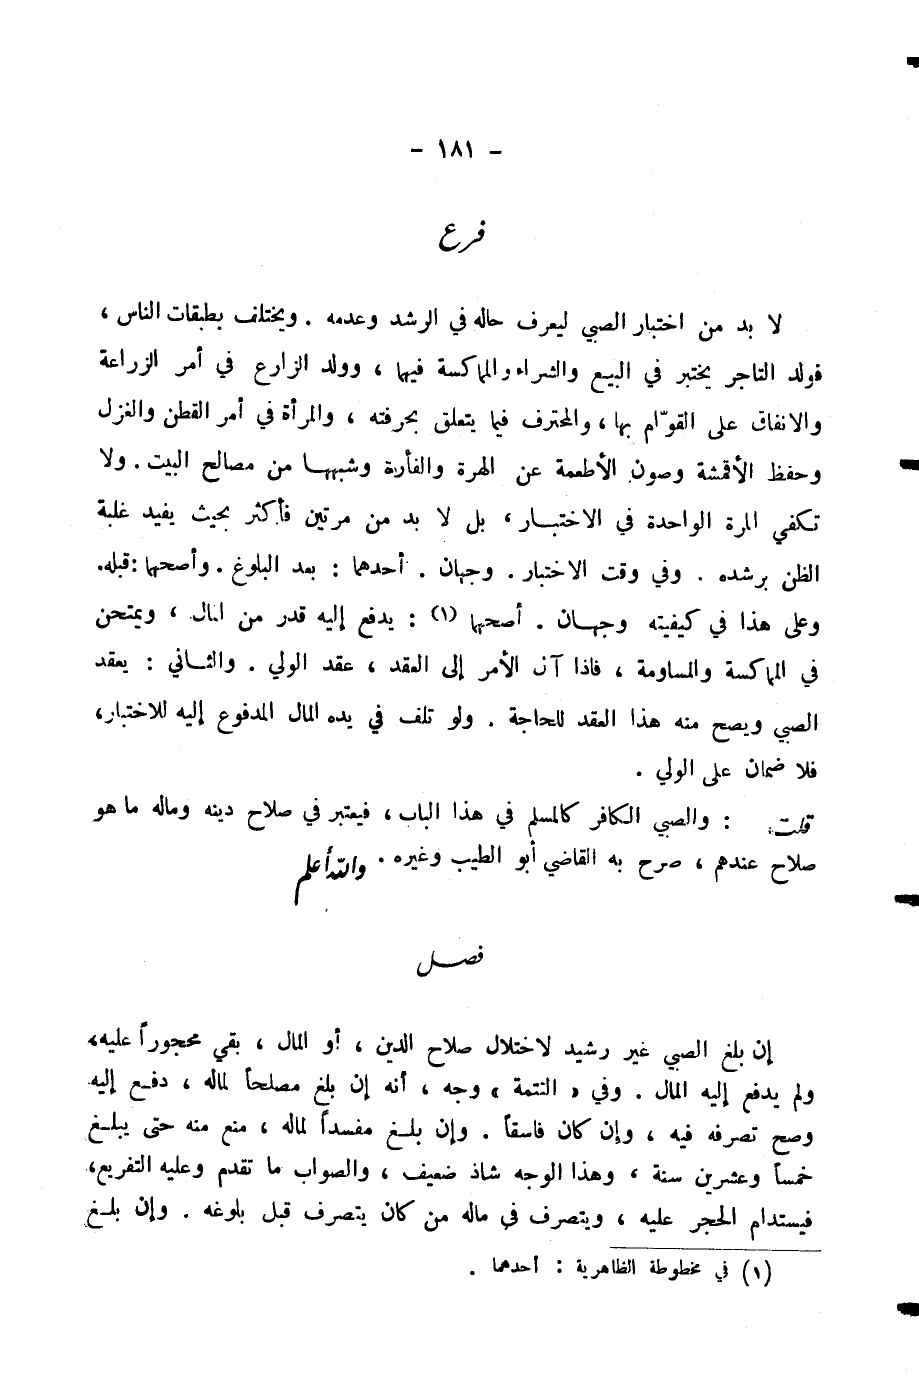 - ١٨١ -
فرع
لا بد من اختبار الصبي ليعرف حاله في الرشد وعدمه . ويختلف بطبقات الناس ،
فولد التاجر يختبر في البيع والشراء والمماكسة فيها ، وولد الزارع في أمر الزراعة
والانفاق على القوّام بها ، والمحترف فيما يتعلق بحرفته ، والمرأة في أمر القطن والغزل
وحفظ الأقمشة وصون الأطعمة عن الهرة والفأرة وشبهها من مصالح البيت . ولا
تكفي المرة الواحدة في الاختبار ، بل لا بد من مرتين فأكثر بحيث يفيد غلبة
الظن برشده . وفي وقت الاختبار . وجهان . أحدهما : بعد البلوغ . وأصحها : قبله.
وعلى هذا في كيفيته وجهان . أصحها (١) : يدفع إليه قدر من المال ، ويمتحن
في المماكسة والمساومة ، فاذا آل الأمر إلى العقد ، عقد الولي . والثاني : يعقد
الصبي ويصح منه هذا العقد للحاجة . ولو تلف في يده المال المدفوع إليه للاختبار،
فلا ضمان على الولي .
قلت : والصبي الكافر كالمسلم في هذا الباب ، فيعتبر في صلاح دينه وماله ما هو
صلاح عندهم ، صرح به القاضي أبو الطيب وغيره . والله أعلم
فصل
إن بلغ الصبي غير رشيد لاختلال صلاح الدين ، أو المال ، بقي محجوراً عليه،
ولم يدفع إليه المال . وفي « التتمة » وجه ، أنه إن بلغ مصلحاً لماله ، دفع إليه
وصح تصرفه فيه ، وإن كان فاسقاً . وإن بلغ مفسداً لماله ، منع منه حتى يبلغ
خمساً وعشرين سنة ، وهذا الوجه شاذ ضعيف ، والصواب ما تقدم وعليه التفريع،
فيستدام الحجر عليه ، ويتصرف في ماله من كان يتصرف قبل بلوغه . وإن بلغ
(١) في مخطوطة الظاهرية : أحدهما .